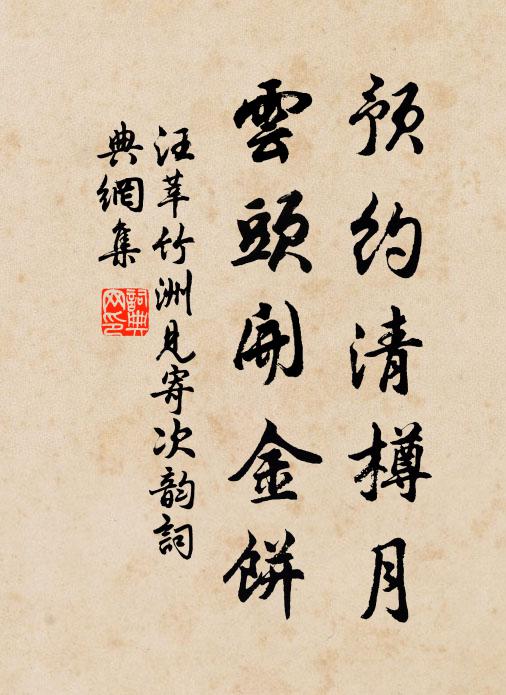 预约清樽月
雲頭開金餅
汪莘竹洲見寄次韵詞
典網集
詞典网印